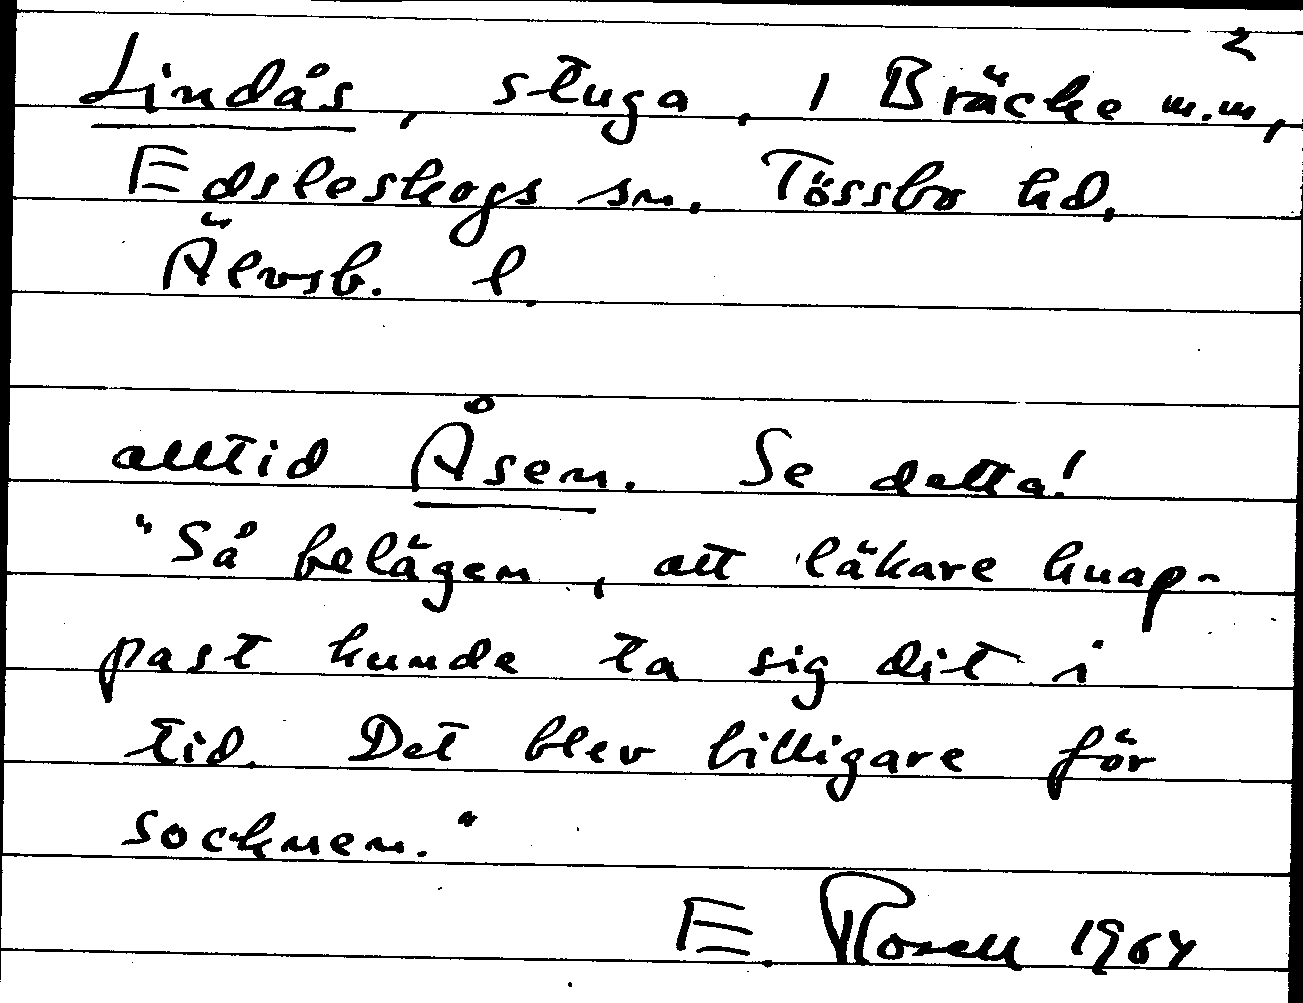 Lindås, stuga, 1 Bräcke m.m, 2
Edsleskogs sn. Tössbo hd.
Älvsb. l.
alltid Åsen. Se detta!
"Så belägen, att läkare knap-
past kunde ta sig dit i
tid. Det blev billigare för
socknen."
E. Rosell 1964